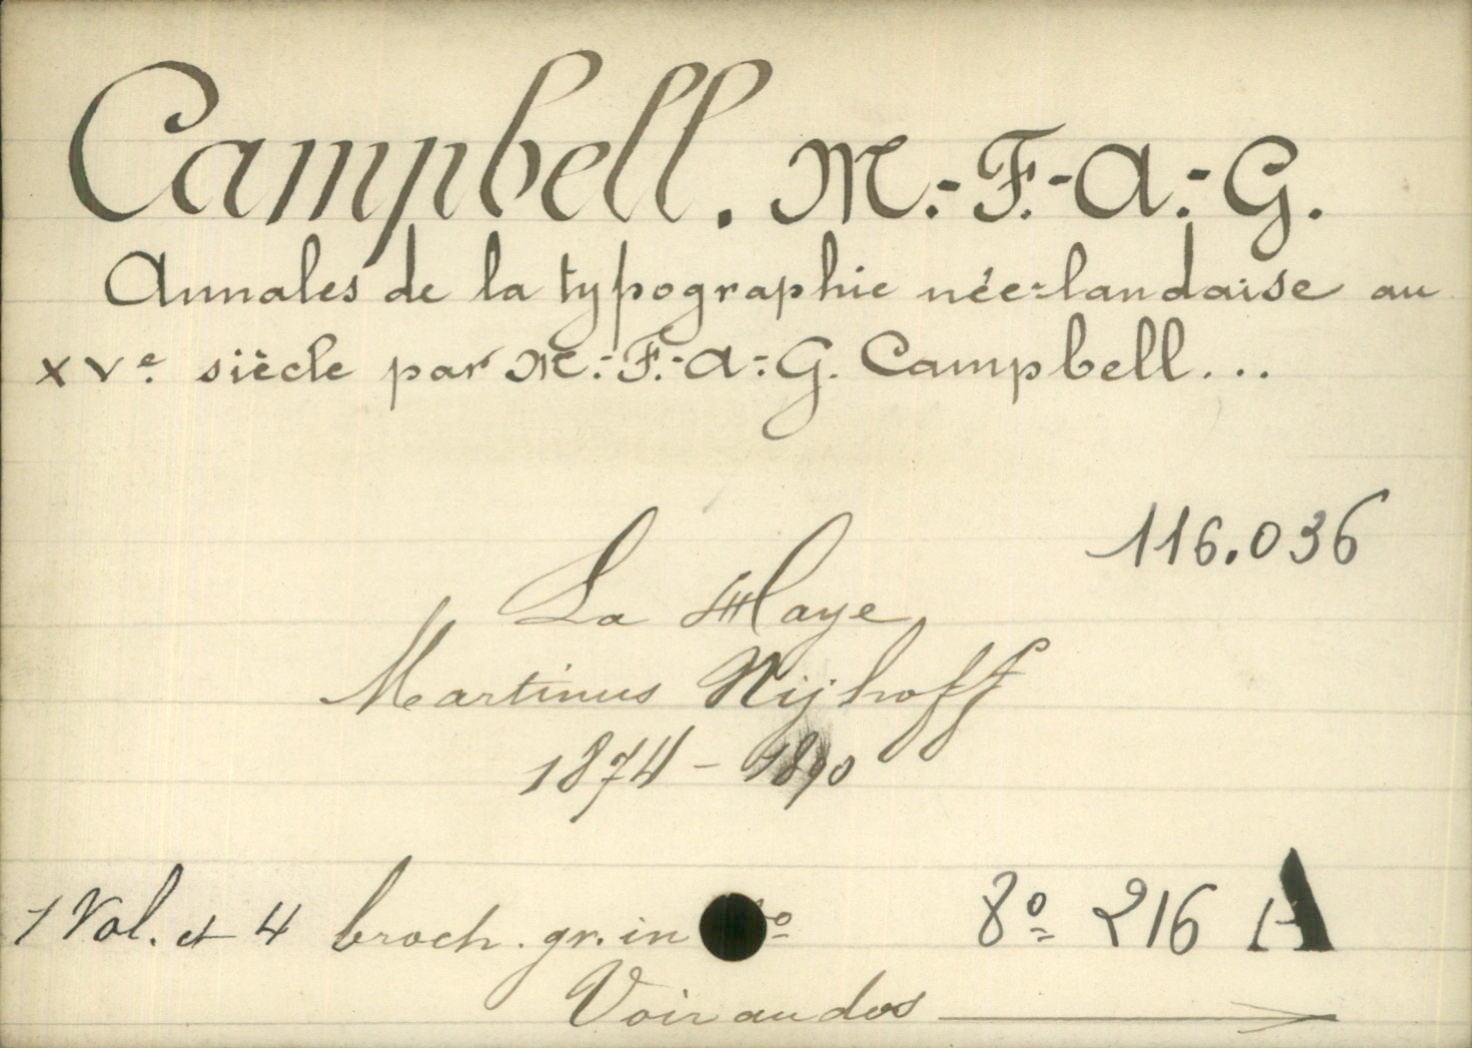 Campbell. M.-F.-A.-G.
Annales de la typographie née-landaise au
XVe. siècle par M.-F.-A.-G. Campbell...
116.036
La Haye
Martinus Nijhoff
1874 - 1890
1 Vol. et 4 broch. gr. in 8º 216 A
Voir au dos